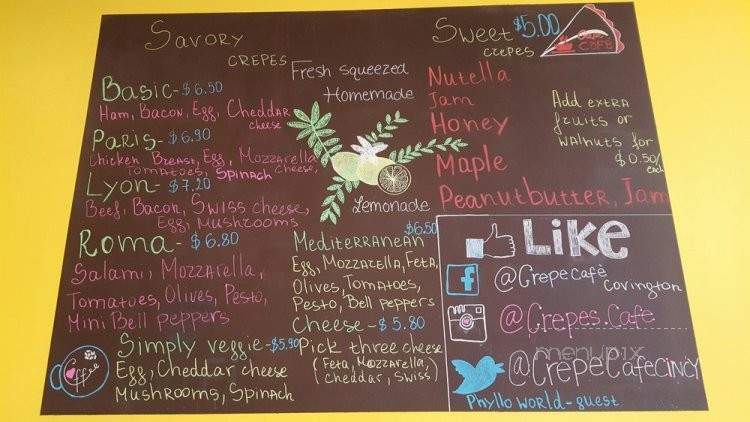 Savory
CREPES
Basic - $6.50
Ham, Bacon, Egg, Cheddar
cheese
Paris - $6.90
Chicken Breast, Egg, Mozzarella
Tomatoes, Spinach cheese,
Lyon - $7.20
Beef, Bacon, Swiss cheese,
Egg, Mushrooms
Roma - $6.80
Salami, Mozzarella,
Tomatoes, Olives, Pesto,
Mini Bell peppers
Simply veggie - $5.90
Egg, Cheddar cheese
Mushrooms, Spinach
Coffee
Fresh squeezed
Homemade
Lemonade
$6.50
Mediterranean
Egg, Mozzarella, Feta,
Olives, Tomatoes,
Pesto, Bell peppers
Cheese - $5.80
Pick three cheese
(Feta, Mozzarella,
Cheddar, Swiss)
Sweet $5.00
crepes
CAFE
Nutella
Jam
Honey
Maple
Peanutbutter, Jam
Add extra
fruits or
walnuts for
$0.50/
each
Like
@Crepecafe
Covington
@Crepes.Cafe
menupix
@CrepeCafeCincy
Phyllo world - guest